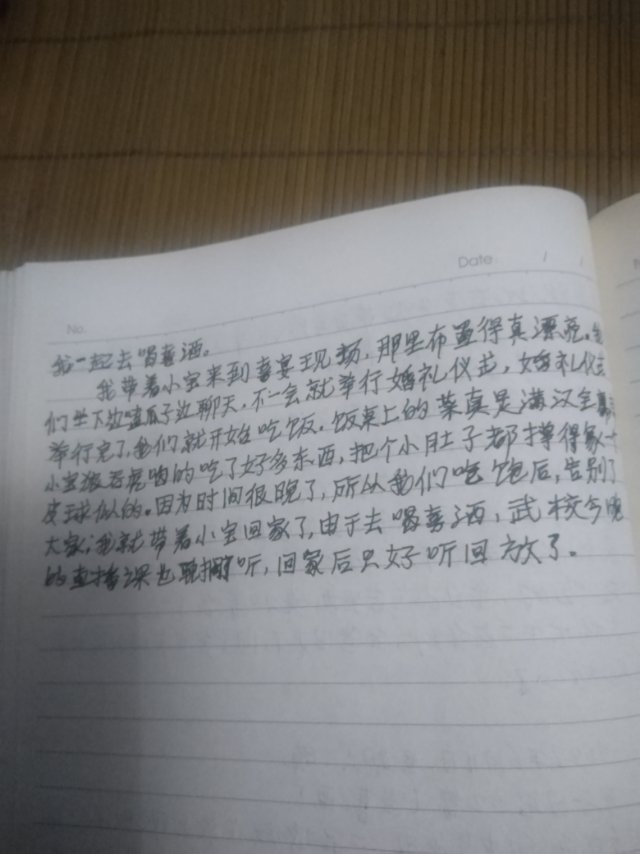 Date / /
No.
我一起去喝喜酒。
我带着小宝来到喜宴现场，那里布置得真漂亮。我
们坐下边嗑瓜子边聊天，不一会就举行婚礼仪式，婚礼仪式
举行完了，我们就开始吃饭。饭桌上的菜真是满汉全
小宝狼吞虎咽的吃了好多东西，把个小肚子都撑得象个
皮球似的。因为时间很晚了，所以我们吃饱后，告别了
大家，我就带着小宝回家了，由于去喝喜酒，武校今晚
的直播课也耽搁了听，回家后只好听回放了。